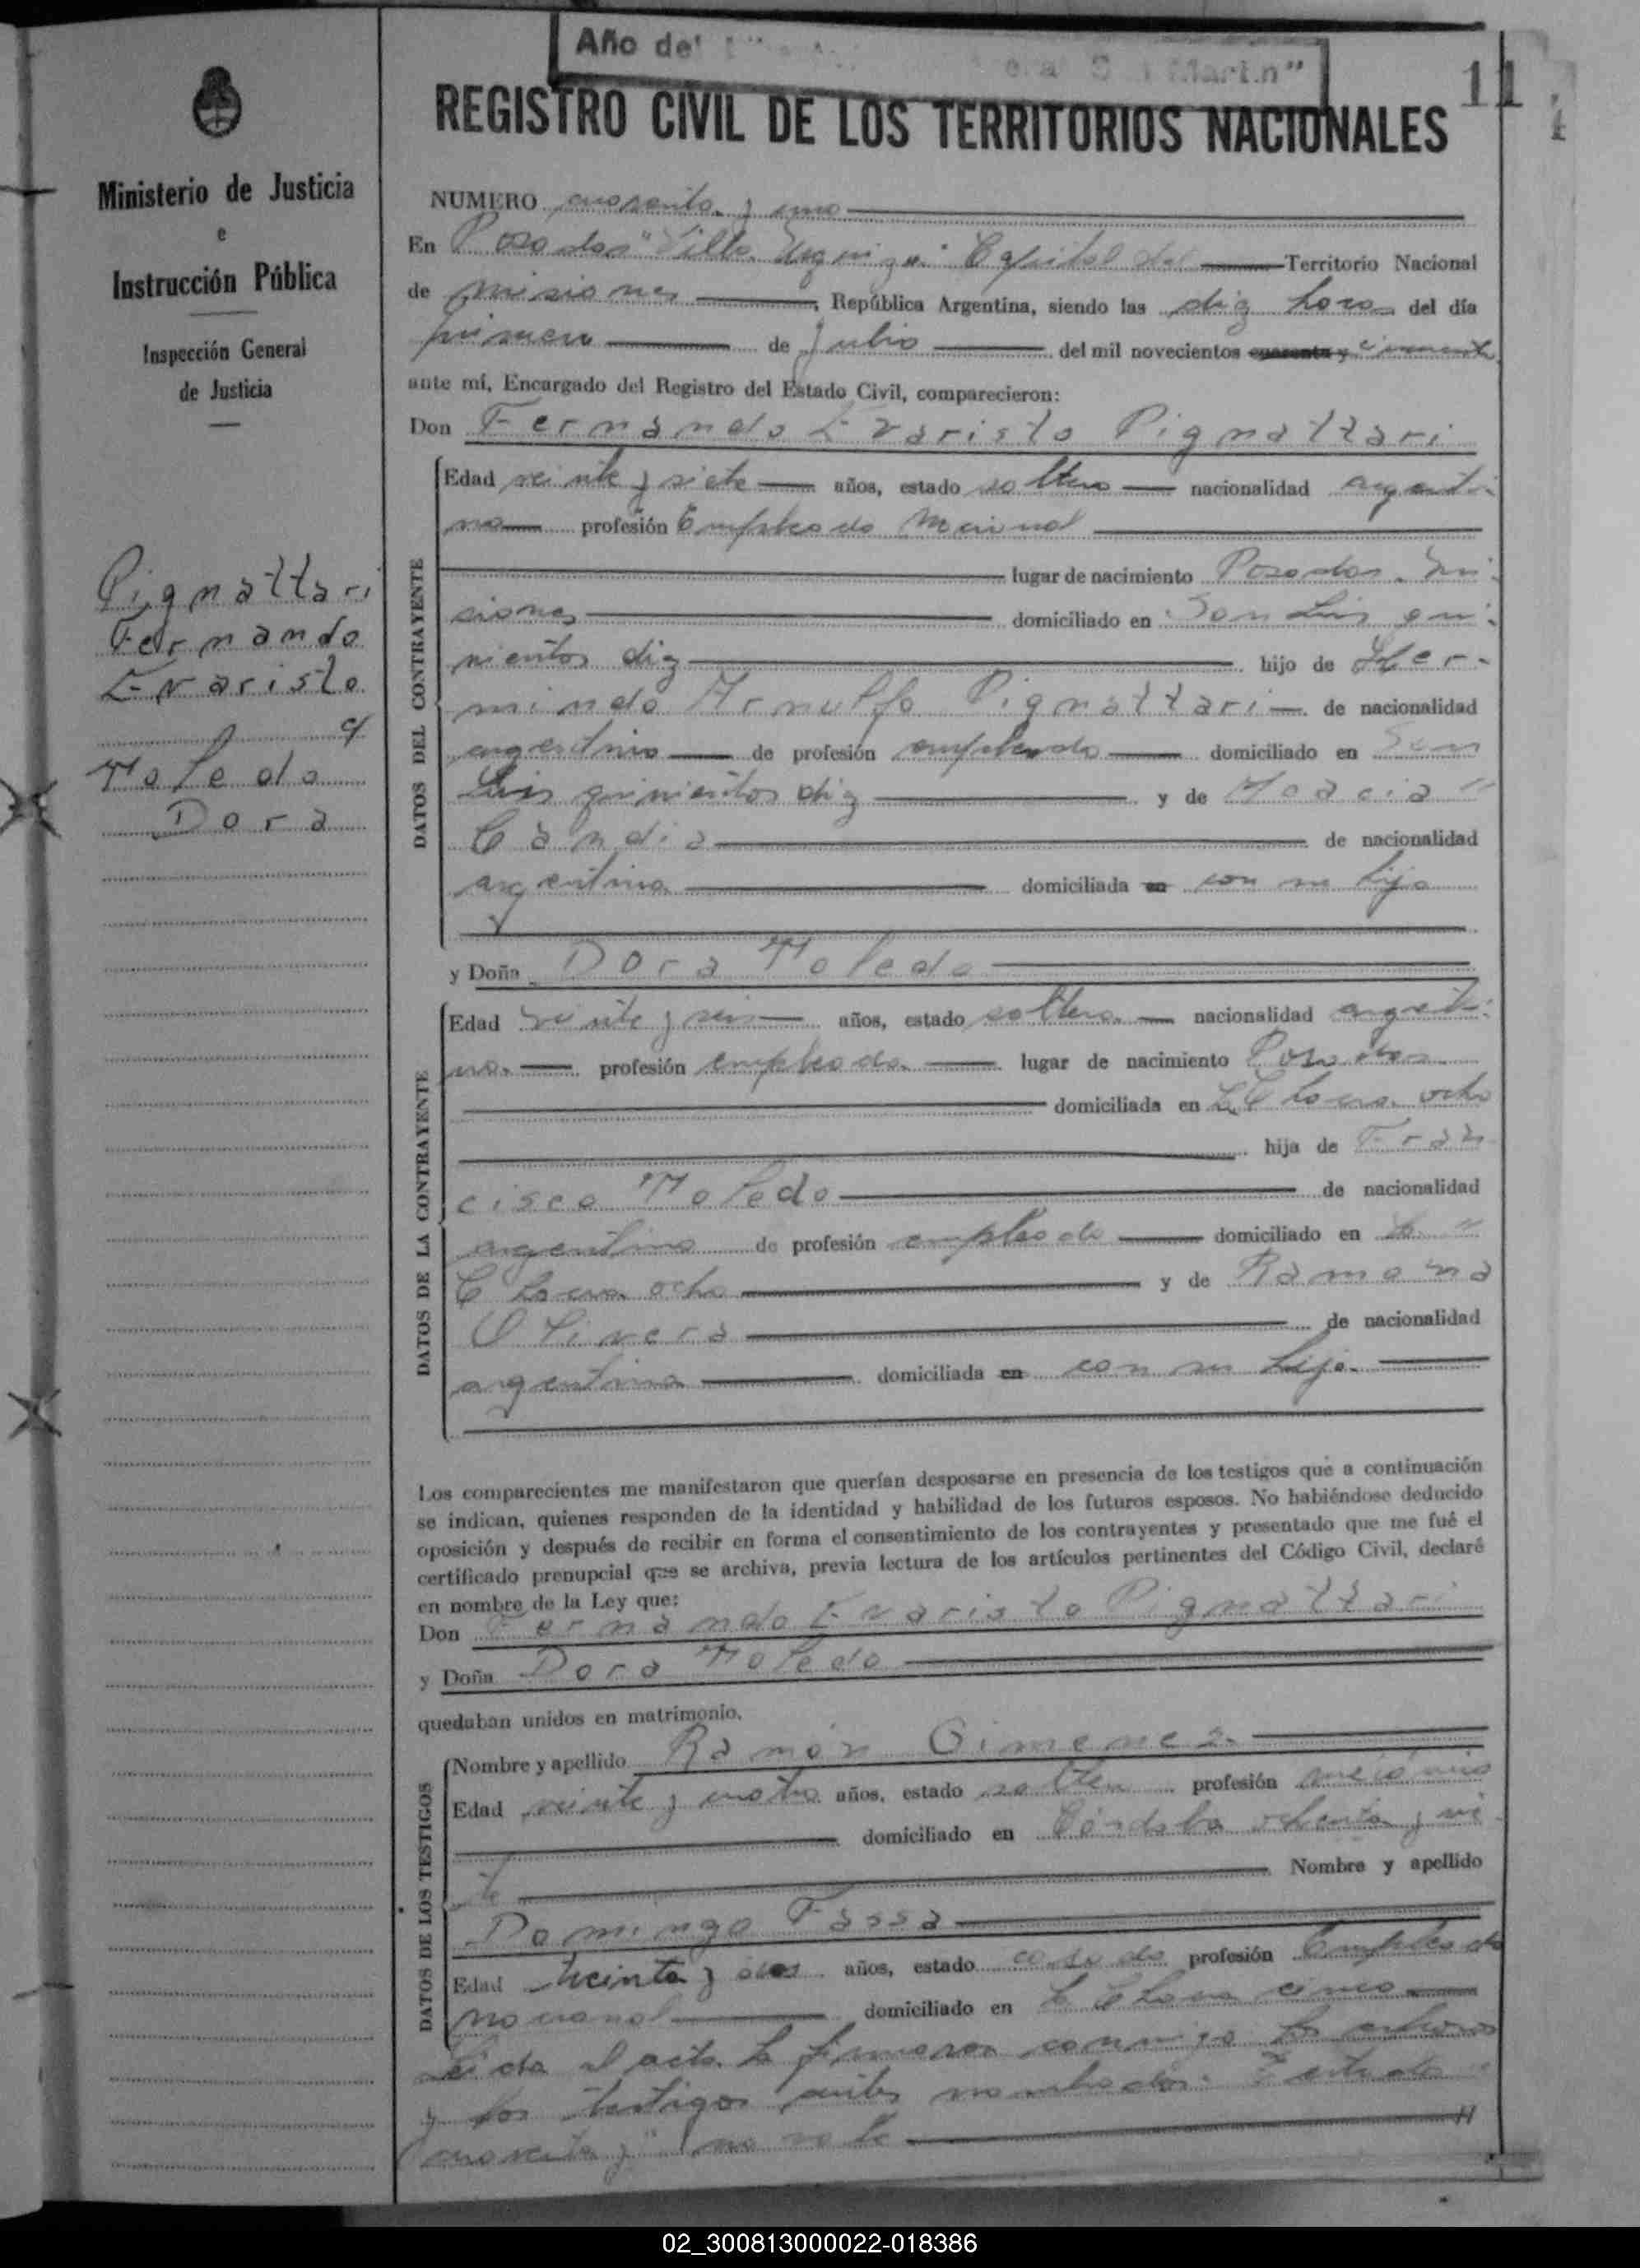 Año del
Martin"
11
REGISTRO CIVIL DE LOS TERRITORIOS NACIONALES
Ministerio de Justicia
e
Instrucción Pública
Inspección General
de Justicia
Pignattari
Fernando
Evaristo
c/
Toledo
Dora
NUMERO cuarenta y uno
En Posadas "Villa Urquiza" Capital del Territorio Nacional
de Misiones, República Argentina, siendo las diez horas del día
primero de Julio del mil novecientos cuarenta y cincuenta
ante mí, Encargado del Registro del Estado Civil, comparecieron:
Don Fernando Evaristo Pignattari
DATOS DEL CONTRAYENTE
Edad veinte y siete años, estado soltero nacionalidad argenti-
no profesión Empleado Nacional
lugar de nacimiento Posadas. Mi-
siones domiciliado en San Luis qui-
nientos diez hijo de Her-
mindo Arnulfo Pignattari de nacionalidad
argentino de profesión empleado domiciliado en San
Luis quinientos diez y de
Candia de nacionalidad
argentina domiciliada en con su hijo
y Doña Dora Toledo
DATOS DE LA CONTRAYENTE
Edad veinte y seis años, estado soltera nacionalidad argenti-
na profesión empleada lugar de nacimiento Posadas
domiciliada en ocho
hija de Fran
cisco Toledo de nacionalidad
argentino de profesión empleado domiciliado en
ocho y de Ramona
Olivera de nacionalidad
argentina domiciliada en con su hija.
Los comparecientes me manifestaron que querían desposarse en presencia de los testigos que a continuación
se indican, quienes responden de la identidad y habilidad de los futuros esposos. No habiéndose deducido
oposición y después de recibir en forma el consentimiento de los contrayentes y presentado que me fué el
certificado prenupcial que se archiva, previa lectura de los artículos pertinentes del Código Civil, declaré
en nombre de la Ley que:
Don Fernando Evaristo Pignattari
y Doña Dora Toledo
quedaban unidos en matrimonio.
DATOS DE LOS TESTIGOS
Nombre y apellido Ramón Gimenez
Edad veinte y cuatro años, estado soltero profesión
domiciliado en Córdoba ochenta y
Nombre y apellido
Domingo Fassa
Edad treinta y dos años, estado casado profesión Empleado
nacional domiciliado en cinco
Leída el acta la firmaron conmigo los esposos
y los testigos antes nombrados. Testado "
cuarenta y" no vale
02_300813000022-018386